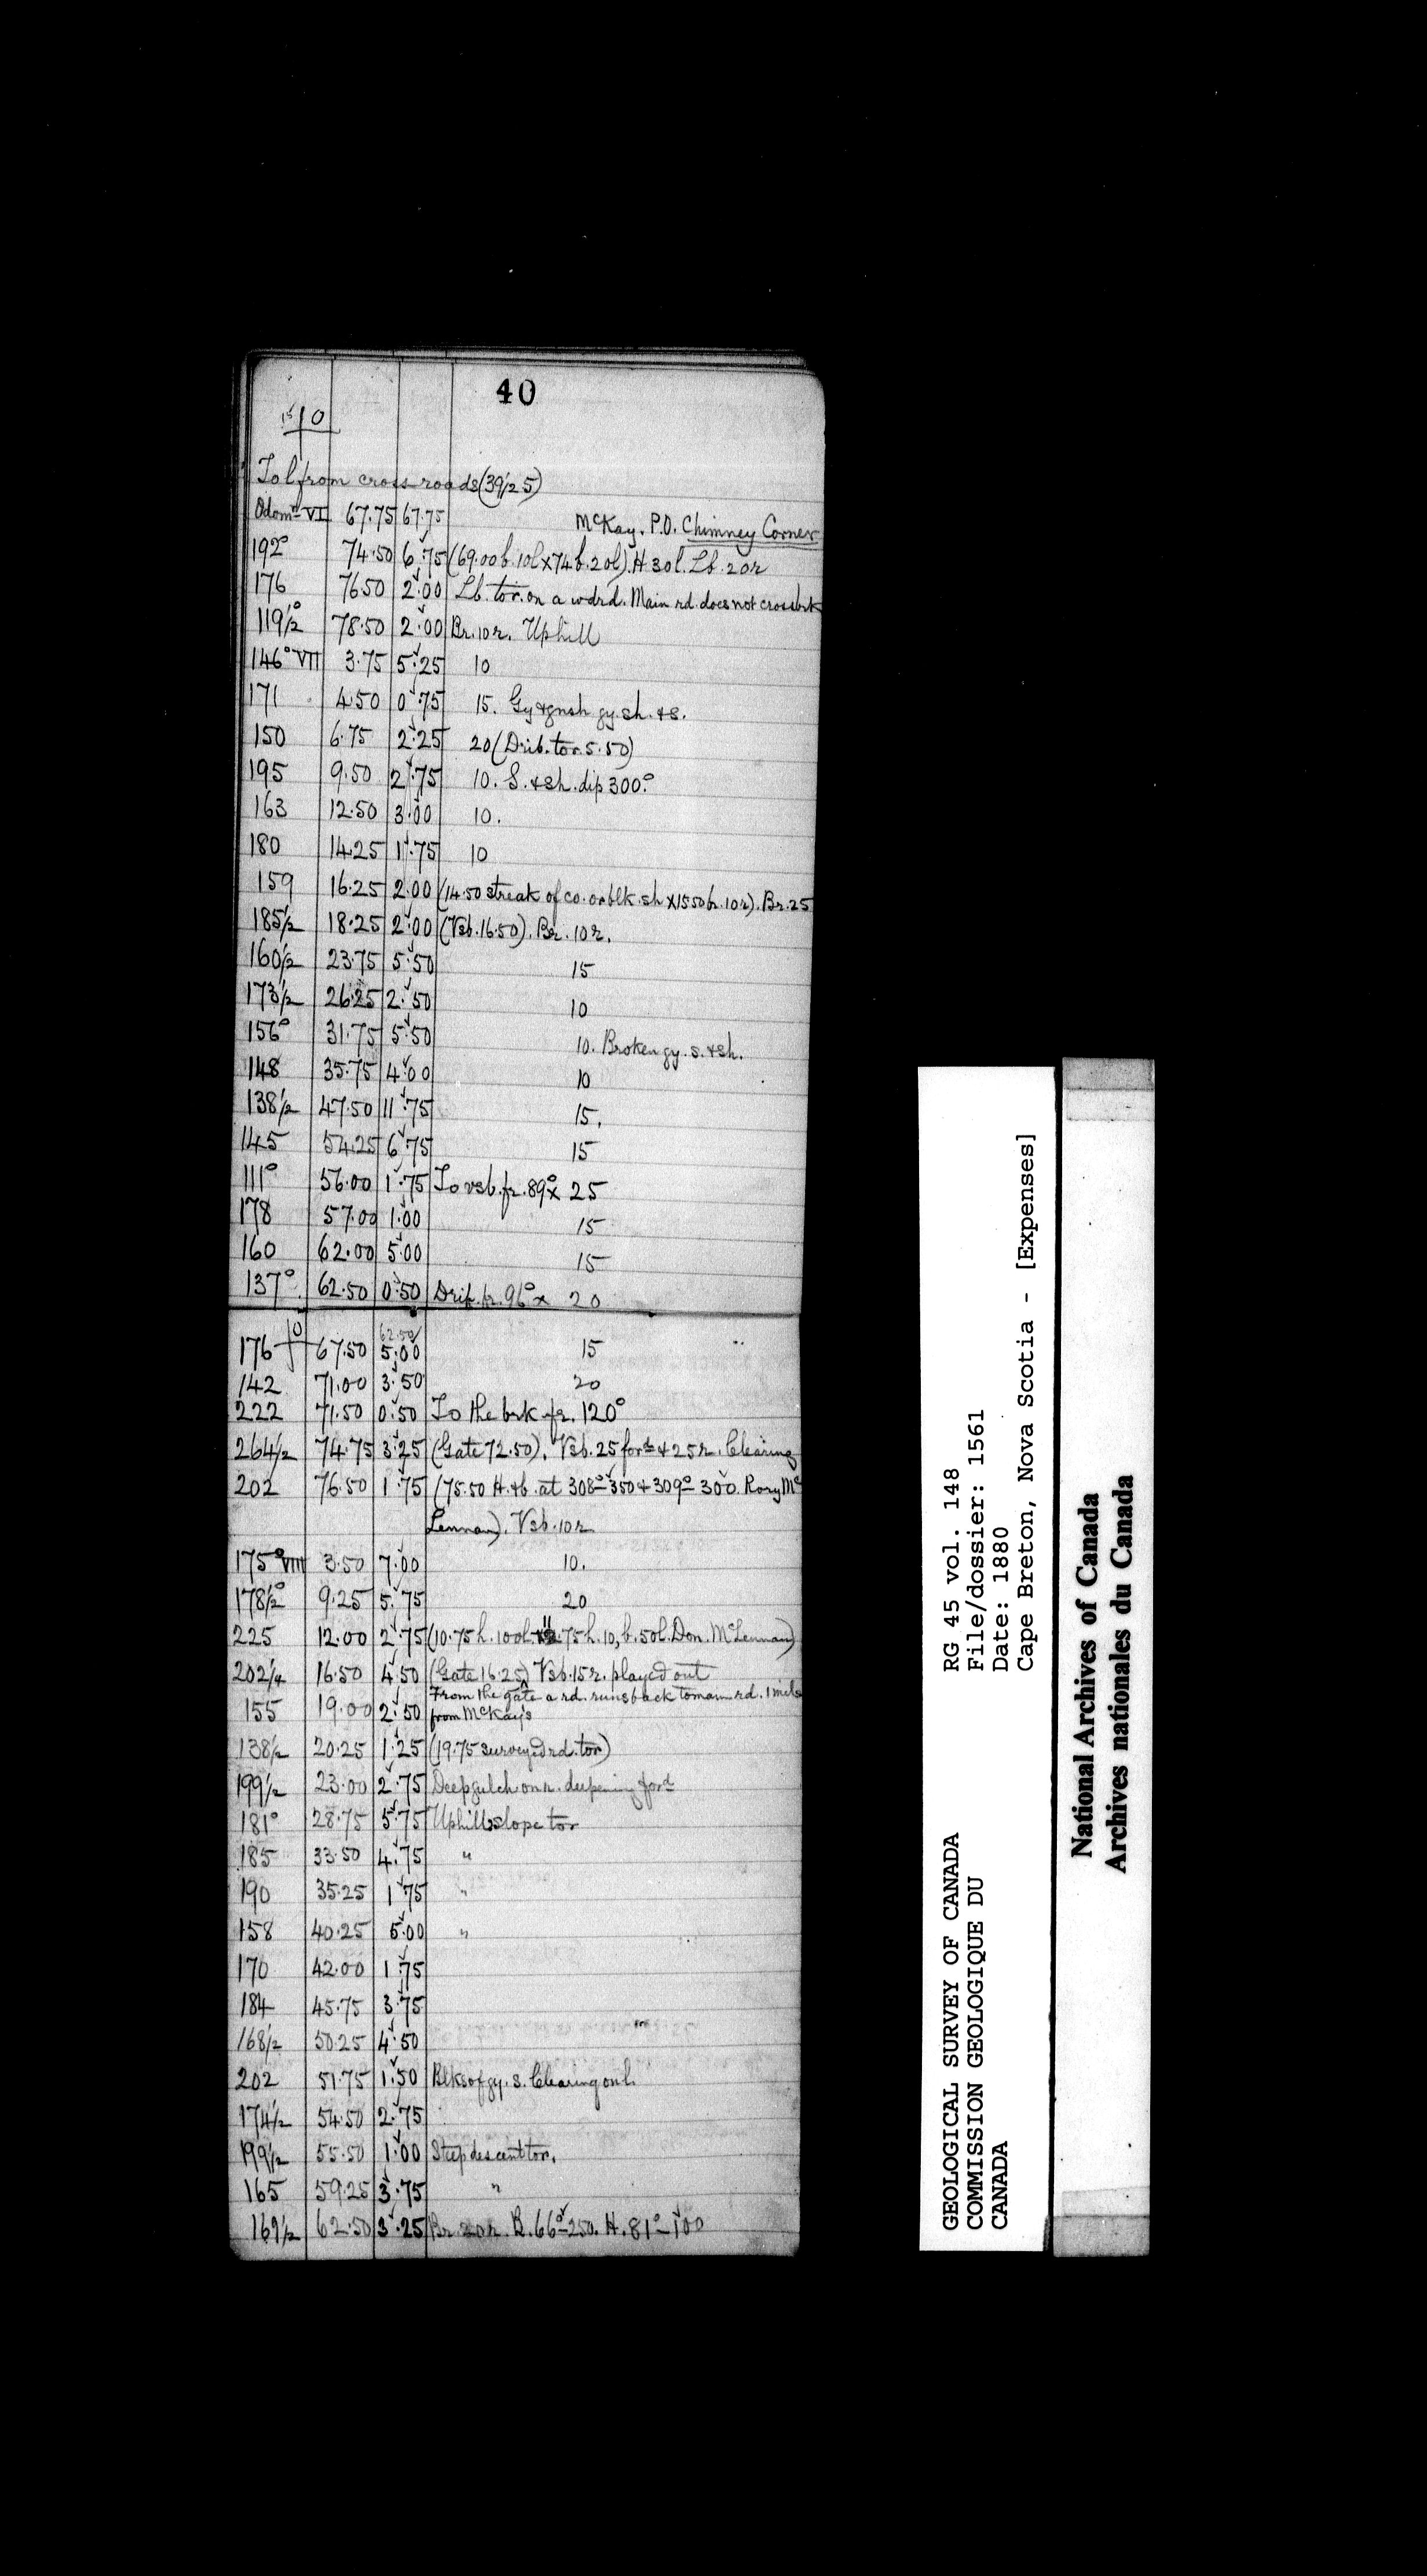 40
10
To l from cross roads (39/25)
Odomr VI 67.75 67.75 McKay. P.O. Chimney Corner
192° 74.50 6.75 (69.00 b. 10l x 74 b. 20l). H 30l. Lb. 20r
176 76.50 2.00 Lb. to r. on a wd rd. Main rd. does not cross brk
119½° 78.50 2.00 Br. 10r. Uphill
146° VII 3.75 5.25 10
171 4.50 0.75 15. Gy & gnsh gy. sh. & s.
150 6.75 2.25 20 (Drib. to r. 5.50)
195 9.50 2.75 10. S. & sh. dip 300°
163 12.50 3.00 10.
180 14.25 1.75 10
159 16.25 2.00 (14.50 streak of co. or blk. sh x 15.50 br. 10r). Br. 25
185½ 18.25 2.00 (Vsb. 16.50). Br. 10r.
160½ 23.75 5.50 15
173½ 26.25 2.50 10
156° 31.75 5.50 10. Broken gy. s. & sh.
148 35.75 4.00 10
138½ 47.50 11.75 15.
145 54.25 6.75 15
111° 56.00 1.75 To vsb. fr. 89° x 25
178 57.00 1.00 15
160 62.00 5.00 15
137° 62.50 0.50 Drib. fr. 96° x 20
10 62.50
176 67.50 5.00 15
142 71.00 3.50 20
222 71.50 0.50 To the brk fr. 120°
264½ 74.75 3.25 (Gate 72.50). Vsb. 25 ford & 25r. Clearing
202 76.50 1.75 (75.50 H. & b. at 308° - 350 & 309° - 300. Rory Mc
Lennan). Vsb. 10r
175° VIII 3.50 7.00 10.
178½° 9.25 5.75 20
225 12.00 2.75 (10.75 h. 100l. 11.75 h. 10, b. 50l. Don. McLennan)
202¼ 16.50 4.50 (Gate 16.25) Vsb. 15r. played out
From the gate a rd. runs back to main rd. 1 mile
155 19.00 2.50 from McKay's
138½ 20.25 1.25 (19.75 surveyed rd. to r)
199½ 23.00 2.75 Deep gulch on r. deepening ford
181° 28.75 5.75 Uphill slope to r
185 33.50 4.75 "
190 35.25 1.75 "
158 40.25 5.00 "
170 42.00 1.75
184 45.75 3.75
168½ 50.25 4.50
202 51.75 1.50 Blks of gy. s. Clearing on l.
174½ 54.50 2.75
199½ 55.50 1.00 Steep descent to r.
165 59.25 3.75 "
169½ 62.50 3.25 Br. 20r. B. 66° - 250. H. 81° - 100
GEOLOGICAL SURVEY OF CANADA
COMMISSION GEOLOGIQUE DU
CANADA
RG 45 vol. 148
File/dossier: 1561
Date: 1880
Cape Breton, Nova Scotia - [Expenses]
National Archives of Canada
Archives nationales du Canada